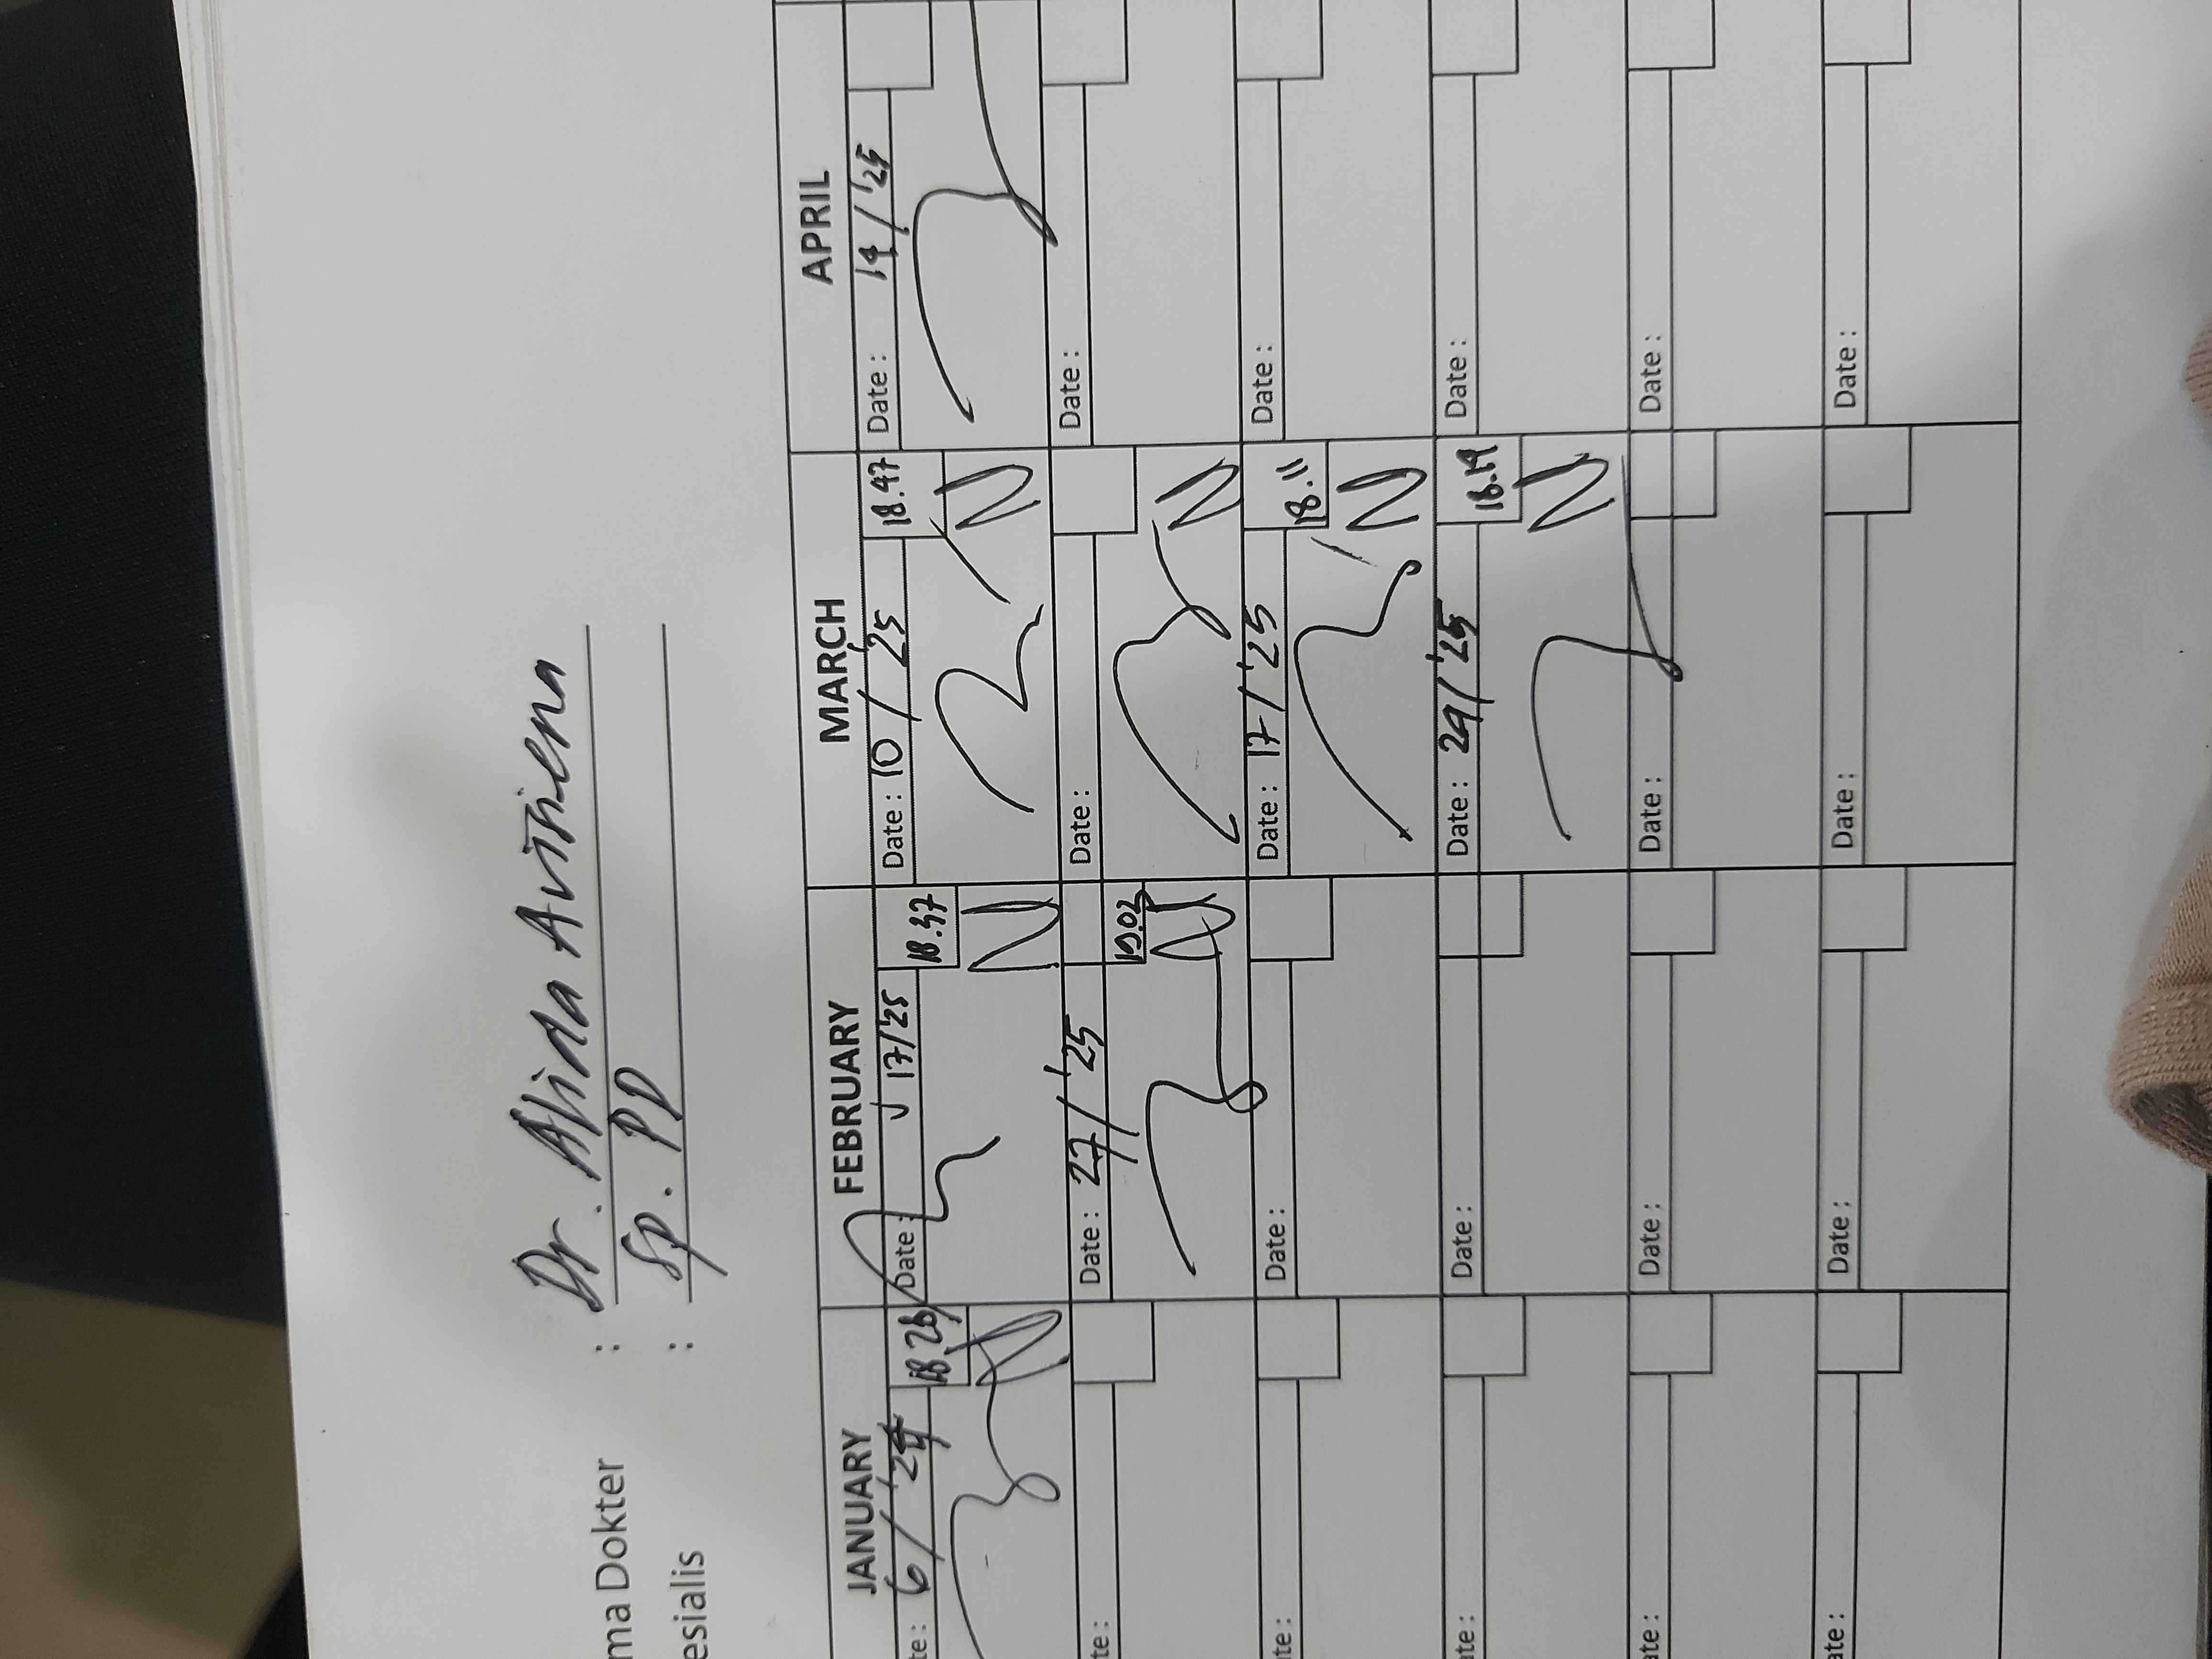 ma Dokter : Dr. Alida Avisiena
esialis : Sp. PD
JANUARY FEBRUARY MARCH APRIL
te : 6/'24 18.26 Date : 17/'25 18.37 Date : 10/'25 18.47 Date : 14/'25
te : Date : 27/'25 19.03 Date : Date :
te : Date : Date : 17/'25 18.11 Date :
ate : Date : Date : 24/'25 18.19 Date :
ate : Date : Date : Date :
ate : Date : Date : Date :